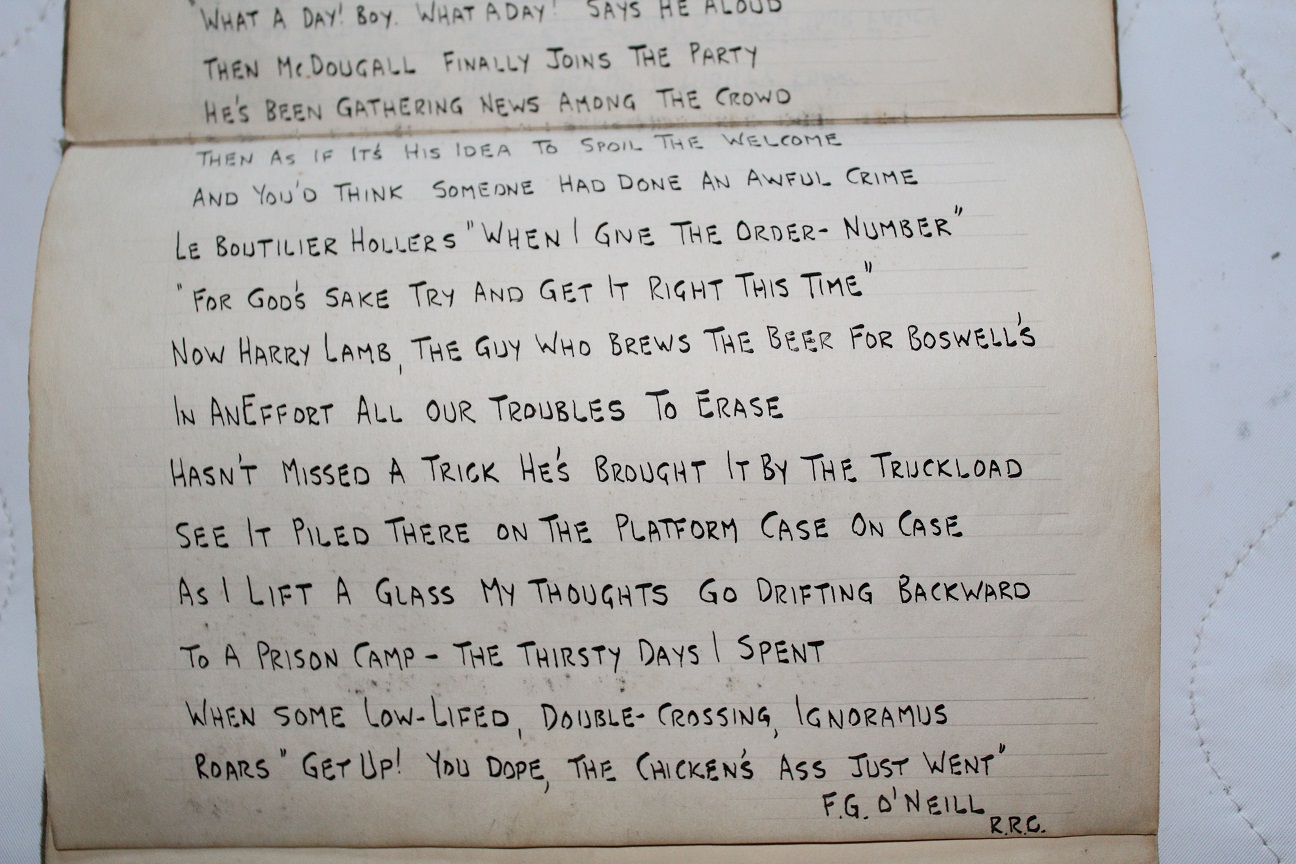 "WHAT A DAY! BOY. WHAT A DAY! SAYS HE ALOUD
THEN McDOUGALL FINALLY JOINS THE PARTY
HE'S BEEN GATHERING NEWS AMONG THE CROWD
THEN AS IF IT'S HIS IDEA TO SPOIL THE WELCOME
AND YOU'D THINK SOMEONE HAD DONE AN AWFUL CRIME
LE BOUTILIER HOLLERS "WHEN I GIVE THE ORDER- NUMBER"
"FOR GOD'S SAKE TRY AND GET IT RIGHT THIS TIME"
NOW HARRY LAMB, THE GUY WHO BREWS THE BEER FOR BOSWELL'S
IN AN EFFORT ALL OUR TROUBLES TO ERASE
HASN'T MISSED A TRICK HE'S BROUGHT IT BY THE TRUCKLOAD
SEE IT PILED THERE ON THE PLATFORM CASE ON CASE
AS I LIFT A GLASS MY THOUGHTS GO DRIFTING BACKWARD
TO A PRISON CAMP - THE THIRSTY DAYS I SPENT
WHEN SOME LOW-LIFED, DOUBLE-CROSSING, IGNORAMUS
ROARS "GET UP! YOU DOPE, THE CHICKEN'S ASS JUST WENT"
F.G. O'NEILL
R.R.C.